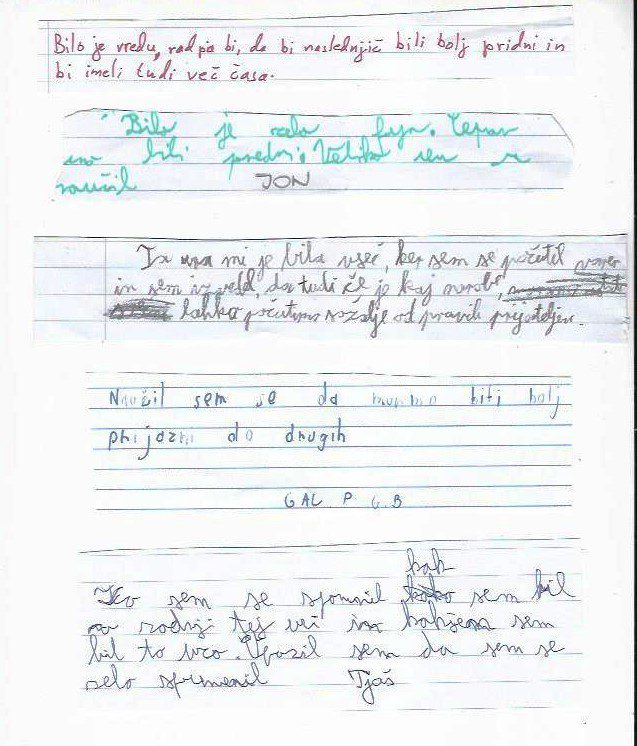 Bilo je vredu, rad pa bi, da bi naslednjič bili bolj pridni in
bi imeli tudi več časa.
Bilo je zelo fajn. Čeprav
smo bili predni. Veliko sem se
naučil JON
Ta ura mi je bila všeč, ker sem se počutil varen
in sem izvedel, da tudi če je kaj narobe,
lahko počutimo sožalje od pravih prijateljev.
Naučil sem se da moramo biti bolj
prijazni do drugih
GAL P G.B
kak
Ko sem se spomnil sem bil
na rodzi tej uri in kakšen sem
bil to uro. Opazil sem da sem se
zelo spremenil Tjaš